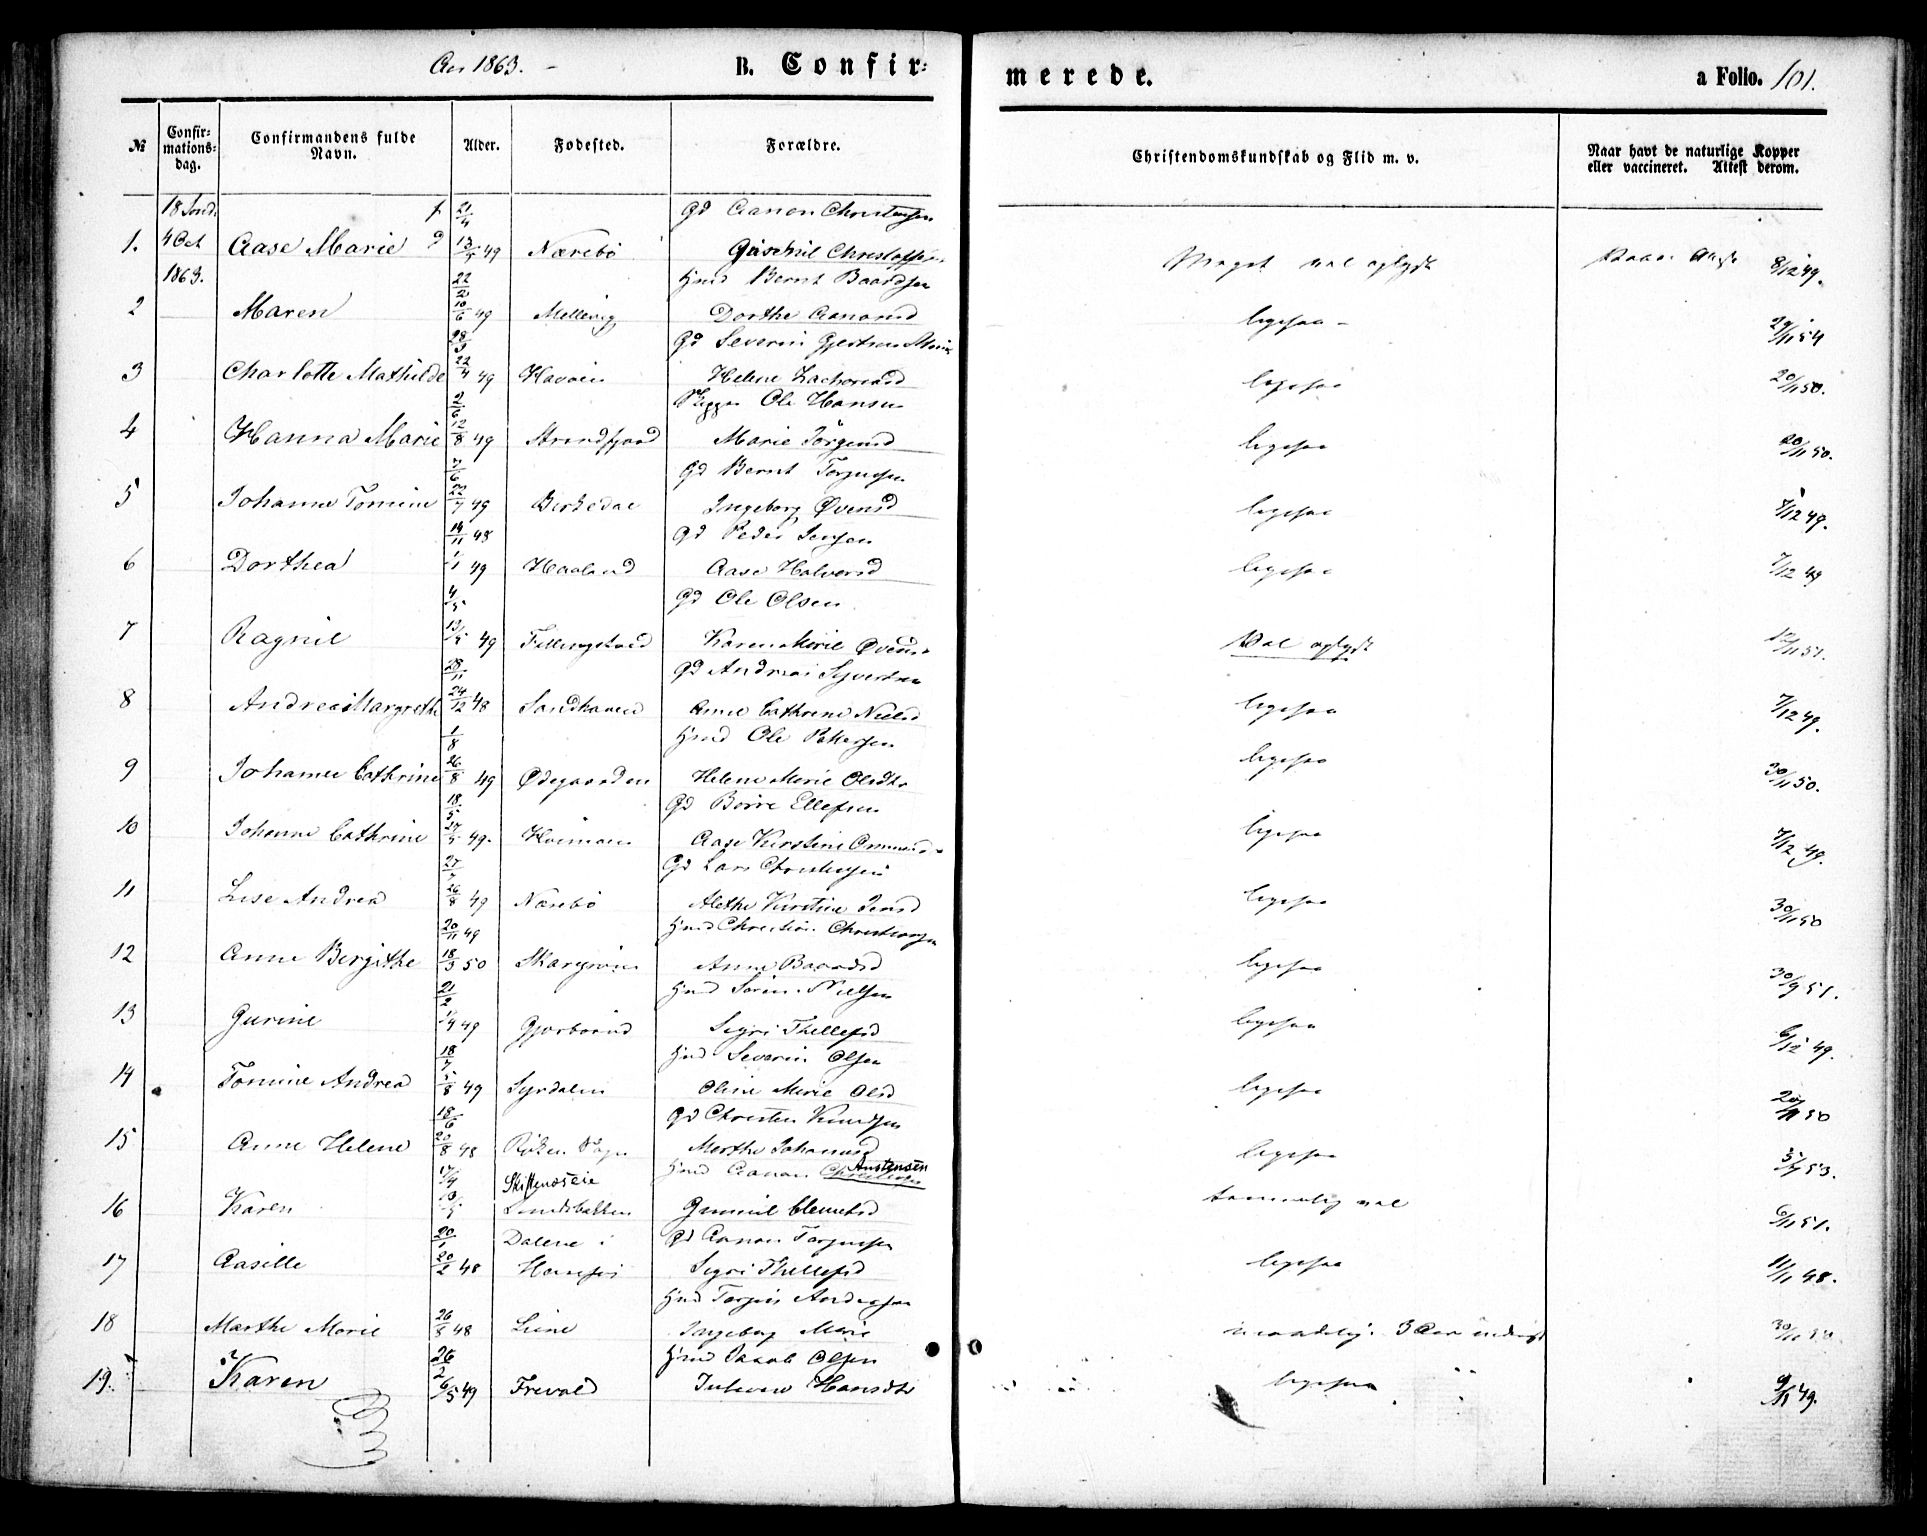 Aar 1863. B. Confir= merede. a Folio. 101.
№ Confir=mations=dag. Confirmandens fulde Navn. Alder. Fødested. Forældre. Christendomskundskab og Flid m. v. Naar havt de naturlige Kopper eller vaccineret. Attest derom.
18 Sønd. 21/4 Gd Aanon Christensen
1. 4 Oct Aase Marie 13/5 49 Nærebø Christophsen Meget vel oplyst 8/12 49.
1863. 22/2 Hmd Bernt Baardsen
2 Maren 10/6 49 Mellevig Dorthe Aanonsd ligesaa 29/11 54
28/3 Gd Severin
3 Charlotte Mathilde 22/4 49 Havøen Helene Zachariasd ligesaa 20/11 50.
2/6 Skipper Ole Hansen
4 Hanna Marie 12/8 49 Strandfjord Marie Jörgensd ligesaa 20/11 50.
7/6 Gd Bernt Torjussen
5 Johanne Tomine 22/7 49 Birkedal Ingeborg Øvensd ligesaa 7/12 49.
14/11 48 Gd Peder Jensen
6 Dorthea 1/1 49 Haaland Aase Halvorsd ligesaa 7/12 49
4/5 Gd Ole Olsen
7 Ragnil 13/5 49 Karen Marie Øvensd Vel oplyst 12/11 51.
28/11 Gd Andreas Syvertsen
8 Andrea Margrethe 24/12 48 Sandhaven Anne Cathrine Nielsd ligesaa 7/12 49.
1/8 Hmd Ole Pettersen
9 Johanne Cathrine 26/8 49 Ødegaarden Helene Marie Olsdtr ligesaa 30/11 50.
18/5 Gd Börre Ellefsen
10 Johanne Cathrine 27/5 49. Aase Kirstine ligesaa 7/12 49.
27/7 Gd Lars Christensen
11 Lise Andrea 26/8 49 Nærebø Alethe Kirstine Jensd ligesaa 30/11 50
20/11 49 Hmd Christian Christensen
12 Anne Bergithe 18/3 50 Anne Baardsd ligesaa 30/9 51.
21/2 Hmd Sören Nielsen
13 Gurine 1/4 49 Gjerborund Segri Thellefsd ligesaa 6/12 49.
18/7 Hmd Severin Olsen
14 Tomine Andrea 5/8 49 Syrdalen Oline Marie Olsd ligesaa 20/11 50
18/6 Gd Christen Knudsen
15 Anne Helene 20/8 48 Röken Sogn Marthe Johannesd ligesaa 5/7 53.
17/4 Skiftenæseie Hmd Aanon Christensen Austensen
16 Karen 13/5 Lundsbakken Gunnil Clemetsd temmelig vel 6/11 51.
20/1 Dalene i Gd Aanon Torjussen
17 Aasille 20/2 48 Segri Thellefsd ligesaa 11/11 48.
Hmd Torjus Andersen
18 Marthe Marie 26/5 48 Liene Ingeborg Marie maadelig. 30/11 50
26/2 Hmd Jacob Olsen
19. Karen 6/5 49 Frevold Hansdtr ligesaa 9/11 49.